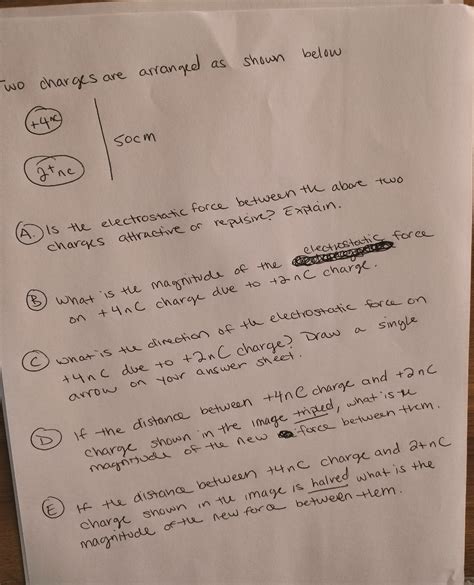 Two charges are arranged as shown below
+4nc
50cm
2+nc
A. Is the electrostatic force between the above two
charges attractive or repulsive? Explain.
B What is the magnitude of the electrostatic force
on +4nC charge due to +2nC charge.
C What is the direction of the electrostatic force on
+4nC due to +2nC charge? Draw a single
arrow on your answer sheet.
D If the distance between +4nC charge and +2nC
charge shown in the image tripled, what is the
magnitude of the new force between them.
E If the distance between +4nC charge and 2+nC
charge shown in the image is halved what is the
magnitude of the new force between them.